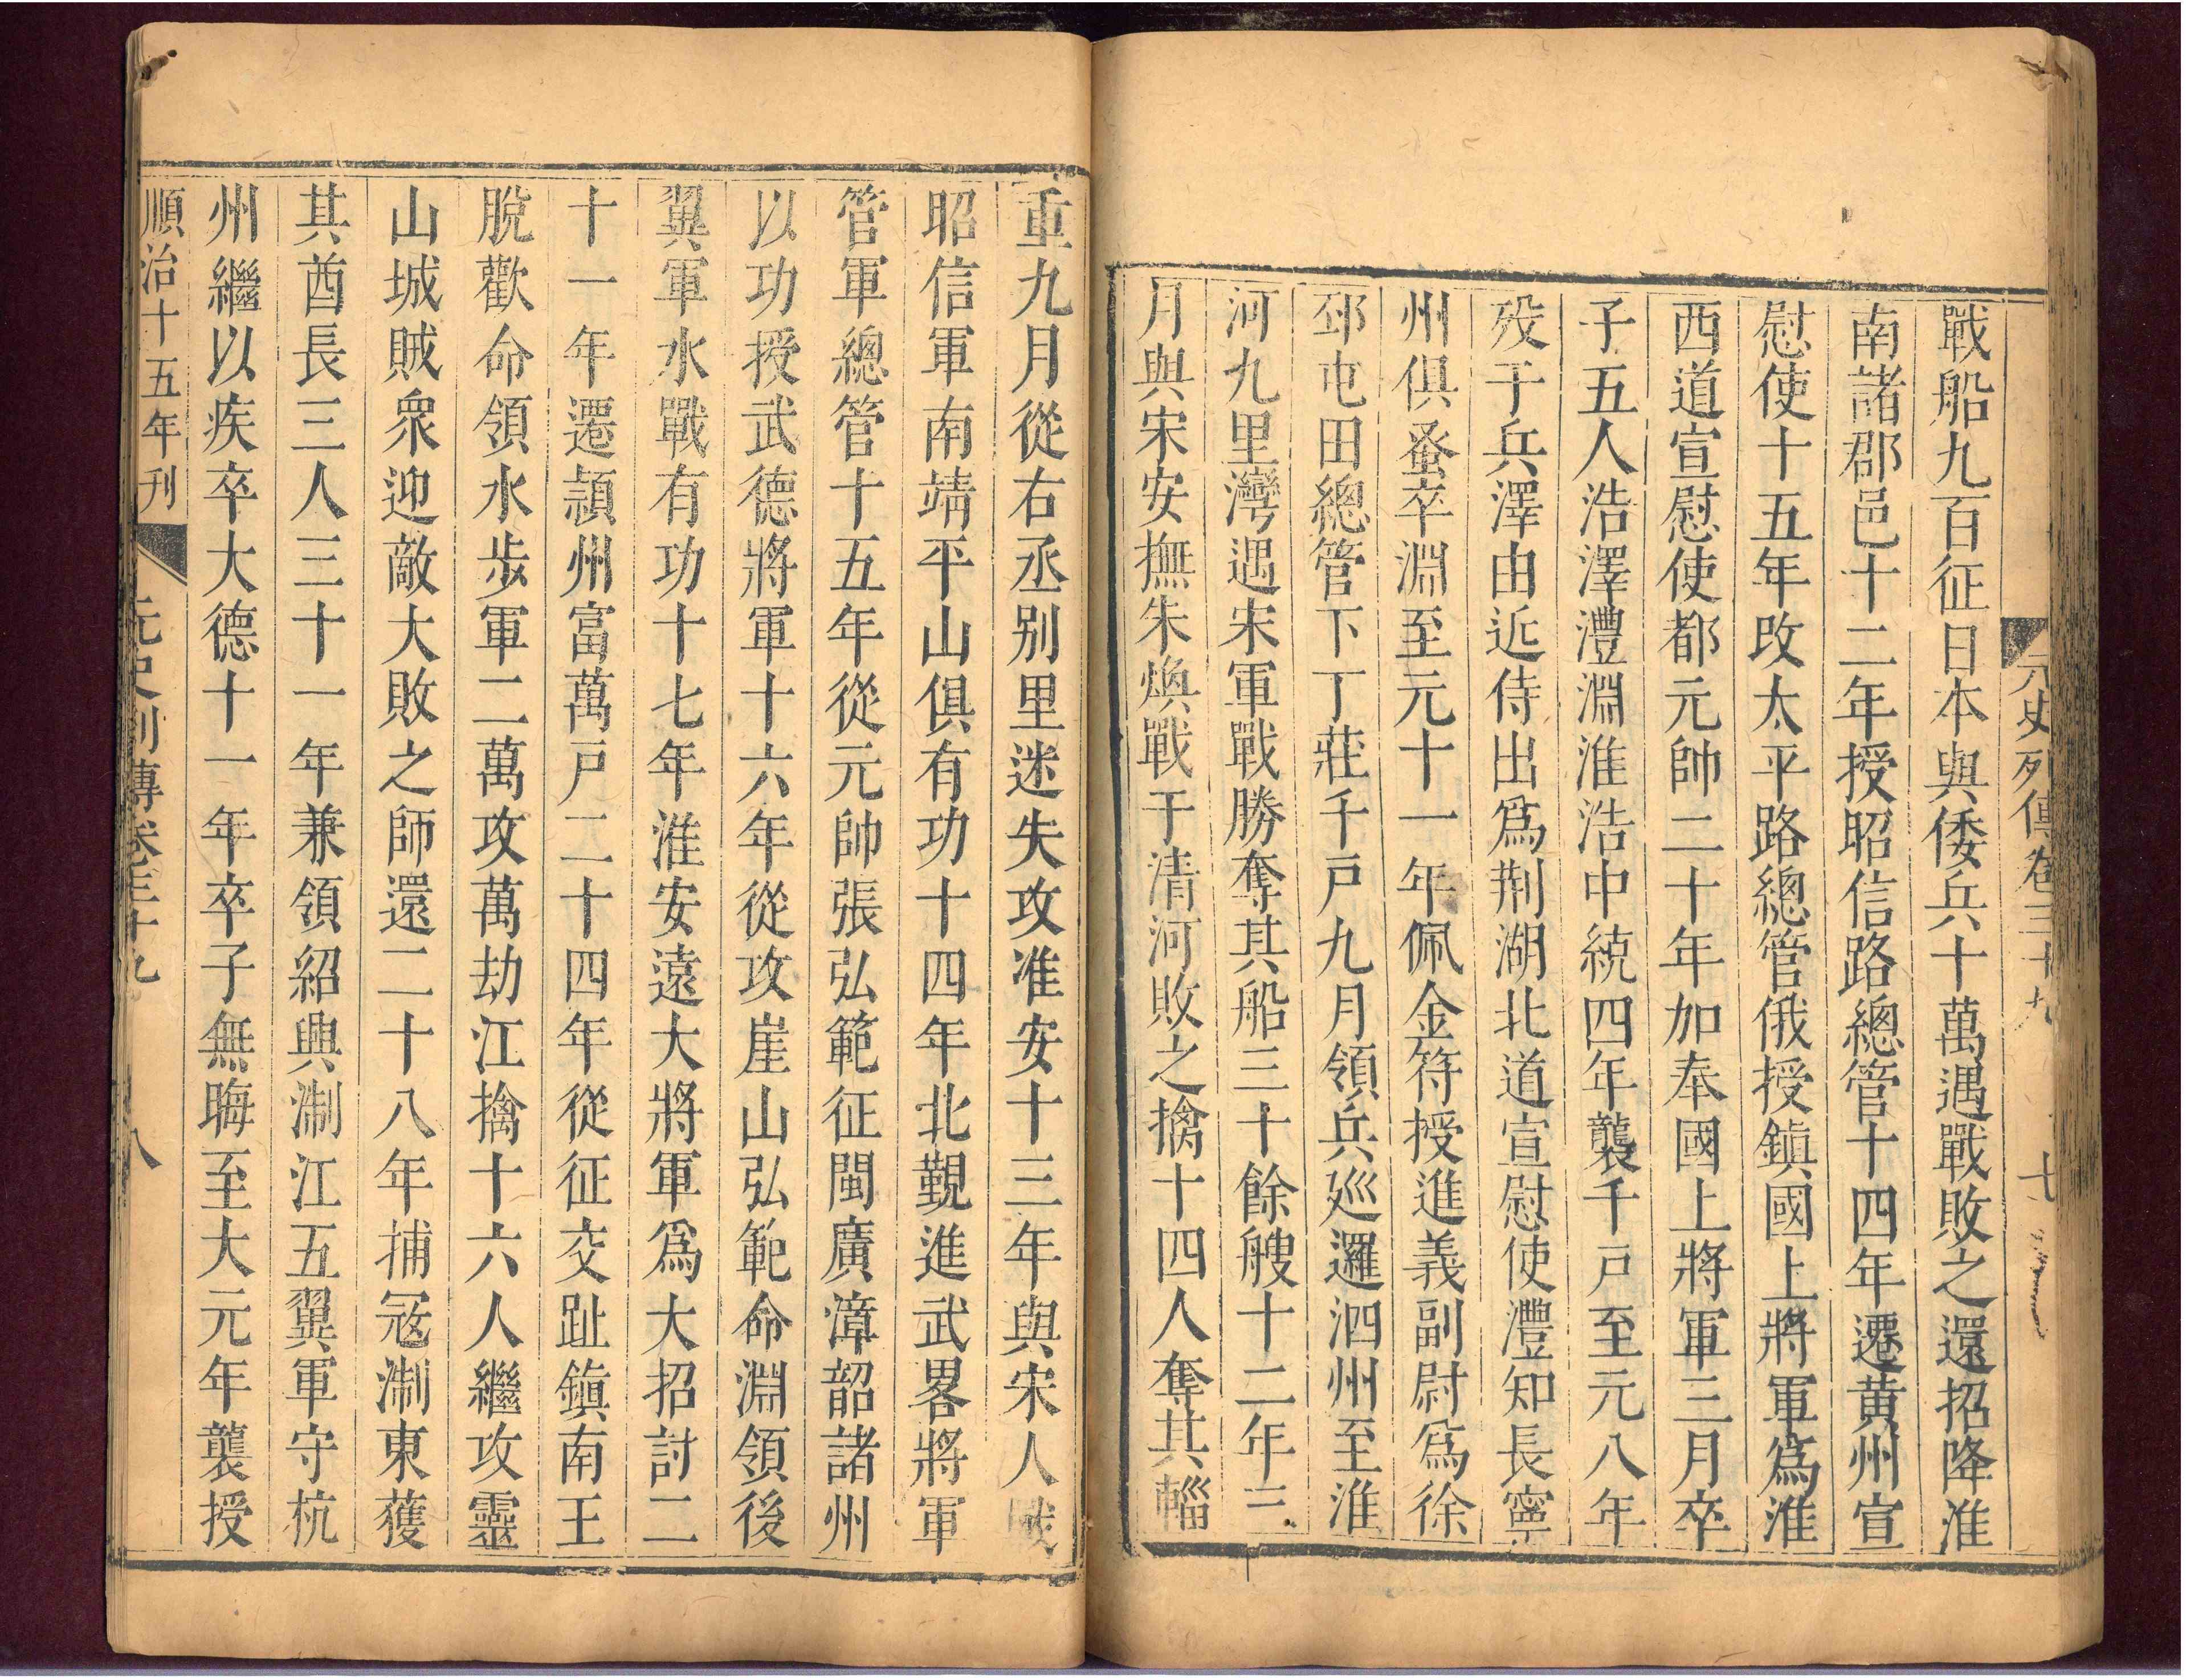 元史列傳卷三十九 七
戰船九百征日本與倭兵十萬遇戰敗之還招降淮
南諸郡邑十二年授昭信路總管十四年遷黃州宣
慰使十五年改太平路總管俄授鎮國上將軍爲淮
西道宣慰使都元帥二十年加奉國上將軍三月卒
子五人浩澤澧淵淮浩中統四年襲千戸至元八年
殁于兵澤由近侍出爲荆湖北道宣慰使澧知長寧
州俱蚤卒淵至元十一年佩金符授進義副尉爲徐
邳屯田總管下丁莊千戸九月領兵廵邏泗州至淮
河九里灣遇宋軍戰勝奪其船三十餘艘十二年三
月與宋安撫朱煥戰于清河敗之擒十四人奪其輜
重九月從右丞别里迷失攻淮安十三年與宋人戰
昭信軍南靖平山俱有功十四年北覲進武畧將軍
管軍總管十五年從元帥張弘範征閩廣漳韶諸州
以功授武德將軍十六年從攻崖山弘範命淵領後
翼軍水戰有功十七年淮安遠大將軍爲大招討二
十一年遷潁州富萬戸二十四年從征交趾鎮南王
脫歡命領水步軍二萬攻萬劫江擒十六人繼攻靈
山城賊衆迎敵大敗之師還二十八年捕冦淛東獲
其酋長三人三十一年兼領紹興淛江五翼軍守杭
州繼以疾卒大德十一年卒子無晦至大元年襲授
順治十五年刊 元史列傳卷三十九 八